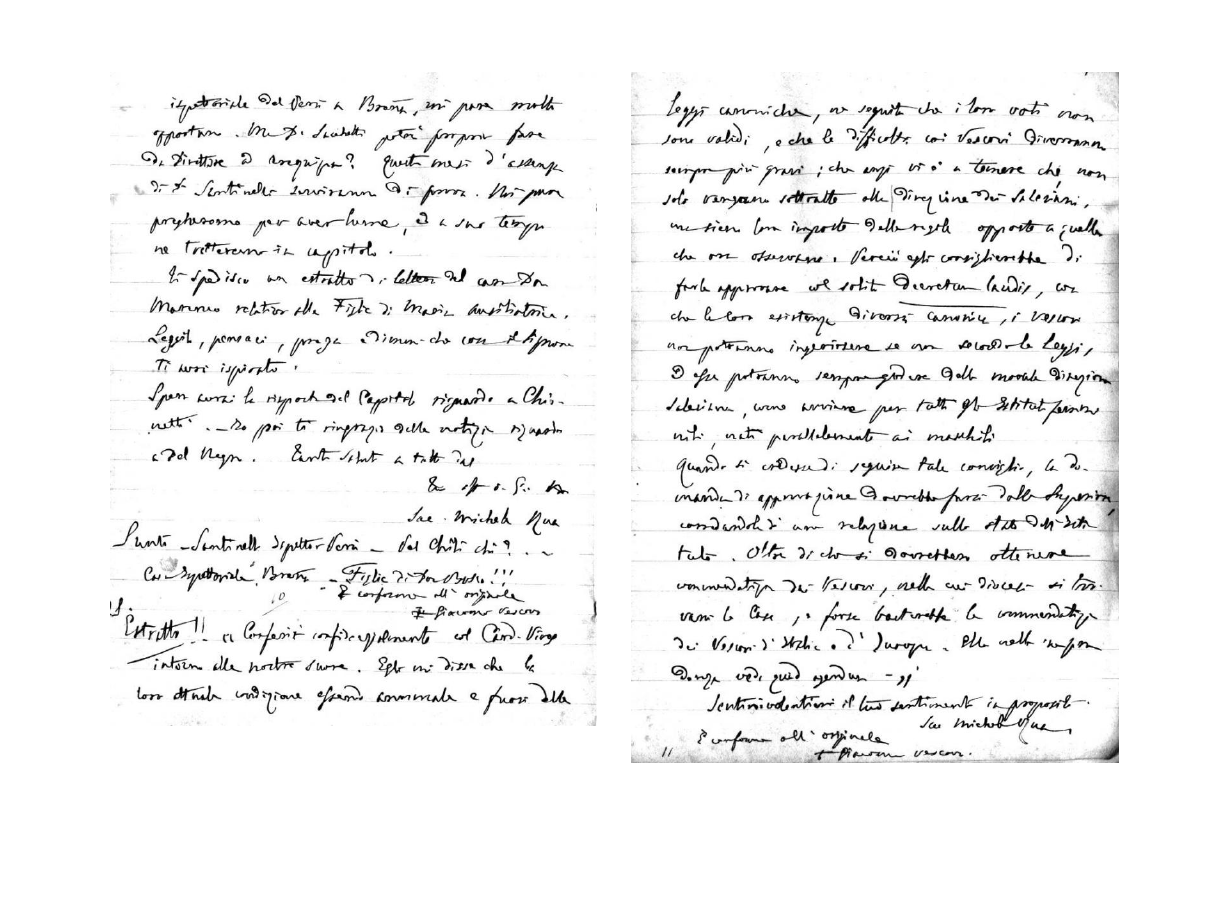 ispettoriale del Perù a Breña, mi pare molto
opportuno. Ma D. potrai proporre fare
da Direttore ad Arequipa? Questi mesi d'assenza
di D. Santinelli serviranno di prova. Noi pure
pregheremo per aver lume, e a suo tempo
ne tratteremo in capitolo.
Ti spedisco un estratto di lettera del caro Don
Marenco relativo alle Figlie di Maria Ausiliatrice.
Leggilo, pensaci, prega e dimmi che cosa il Signore
ti avrà ispirato.
Spero avrai la risposta del Capitolo riguardo a
Io poi ti ringrazio della notizia riguardo
a Del Negro. Tanti saluti a tutti dal
Tuo aff. in G.
Sac. Michele Rua
Sunto - Santinelli Ispettor Perù - Del Chilì chi?
Casa Ispettoriale Breña - Figlie di Don Bosco!!!
È conforme all'originale
+ Giacomo vescovo
Estratto!! Conferii confidenzialmente col Card. Vives
intorno alle nostre suore. Egli mi disse che la
loro attuale condizione essendo anormale e fuori delle
leggi canoniche, ne seguita che i loro voti non
sono validi, e che le difficoltà coi Vescovi diverranno
sempre più gravi; che anzi vi è a temere che non
solo vengano sottratte alla direzione dei Salesiani,
ma siano loro imposte delle regole opposte a quelle
che ora osservano. Perciò egli consiglierebbe di
farle approvare col solito Decretum laudis, con
che la loro esistenza diverrà canonica, i Vescovi
non potranno ingerirsene se non secondo le leggi,
ed esse potranno sempre godere della morale direzione
Salesiana, come avviene per tutti gli Istituti femmi-
nili, nati parallelamente ai maschili
Quando si credesse di seguire tale consiglio, la do-
manda di approvazione dovrebbe farsi dalla Superiora,
corredandola di una relazione sullo stato dell'Isti-
tuto. Oltre di che si dovrebbero ottenere
commendatizie dei Vescovi, nelle cui diocesi si tro-
vano le Case, e forse basterebbe la commendatizia
dei Vescovi d'Italia e d'Europa. Ella nella sua pru-
denza vedrà quid agendum
Sentirò volentieri il tuo sentimento in proposito.
Sac Michele Rua
È conforme all'originale
+ Giacomo vescovo.
11